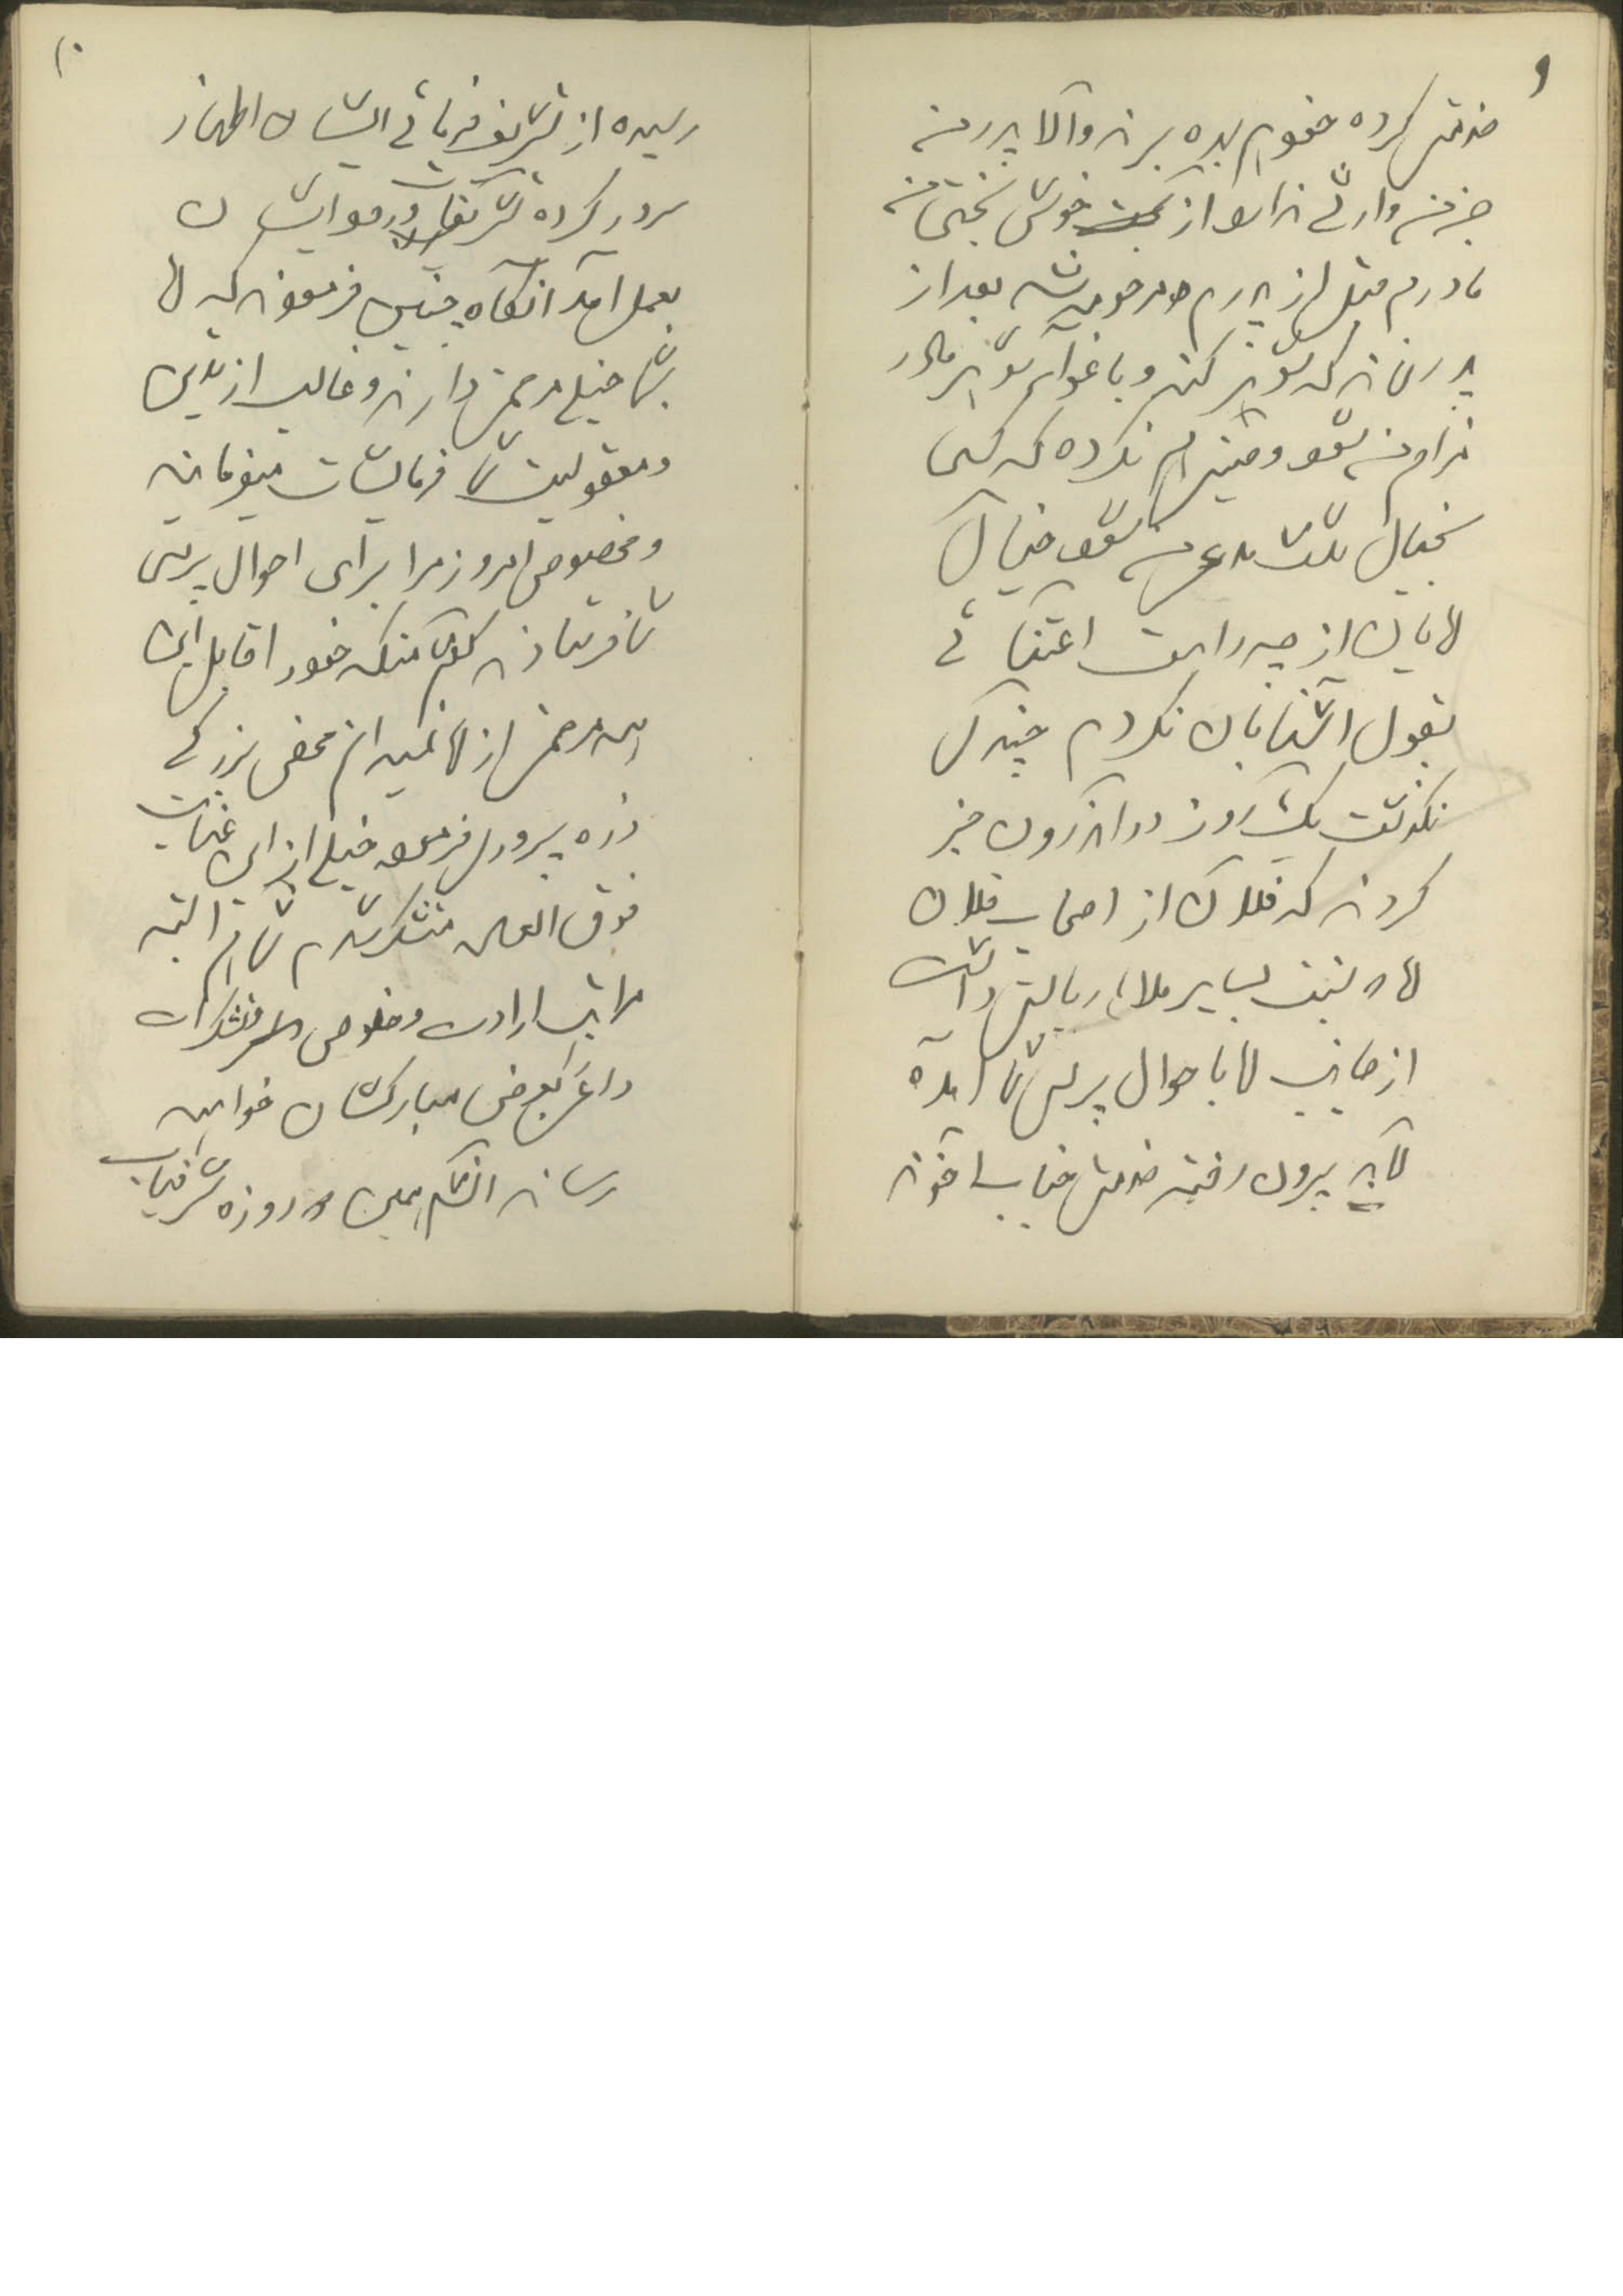 ۹
خدمتش کرده خودم بده برند والا پدر من
جز من وارثی ندارد از خوش بختی من
مادرم قبل از پدرم مرحومه شد بعد از
پدر نماند که شوهر کند و باغوای شوهر مادر
نزاع من شود وصیت هم نکرده که کسی
بخیال ثلث مدعی من شود خیال
لابالی از چه راه است اعتنائی
بقول آشنایان نکردم چند
نگذشت یک روز در اندرون خبر
کردند که فلان از اصحاب فلان
که نسبت بسایر ملاها ریاست داشت
از جانب لها باحوال پرسی شما آمده
لابد بیرون رفته خدمت جناب آخوند
۱۰
رسیده از تشریف فرمائی ایشان اظهار
سرور کرده تشریفات ورود ایشان
بعمل آمد آنگاه چنین فرمودند که لها
بشما خیلی مرحمت دارند و غالب از تدین
و معقولیت شما فرمایشات میفرمایند
و مخصوصا امروز مرا برای احوال پرسی
شما فرستادند گفتم منکه خود را قابل این
همه مرحمت از لها نمیدانم محض بزرگی
ذره پروری فرموده خیلی از این عنایت
فوق العاده متشکر شدم شما هم البته
مراتب ارادت و خلوص و تشکرات
داعی بعرض مبارکشان خواهید
رساند انشاءالله همین دو روزه شرفیاب